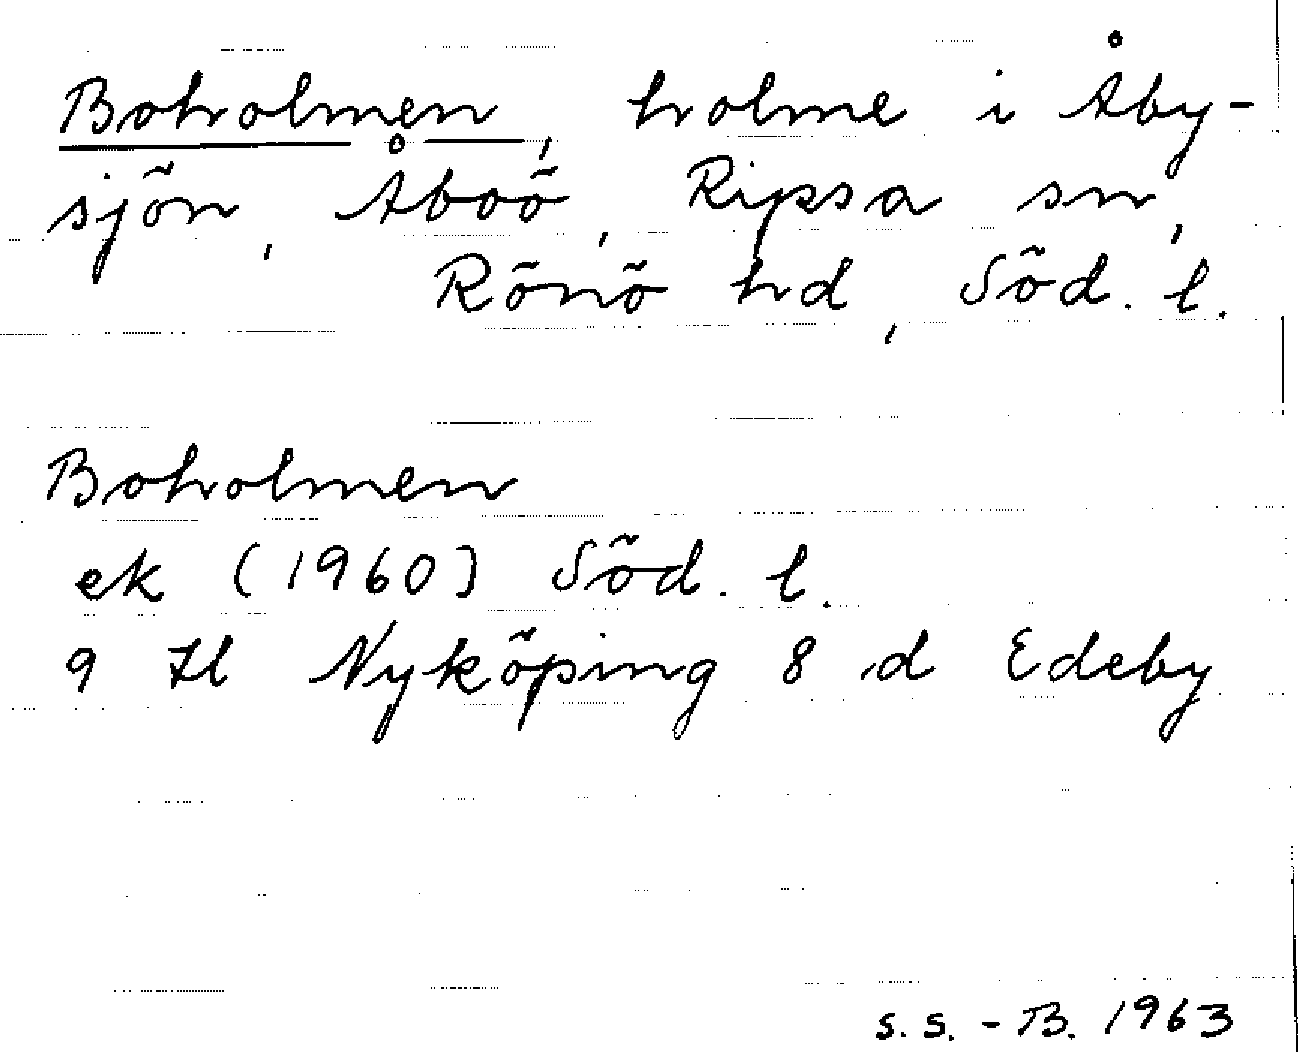 Boholmen, holme i Åby-
sjön, Åboö, Ripsa sn,
Rönö hd, Söd. l.
Boholmen
ek (1960) Söd. l.
9 Hl Nyköping 8 d Edeby
s.s. - B. 1963